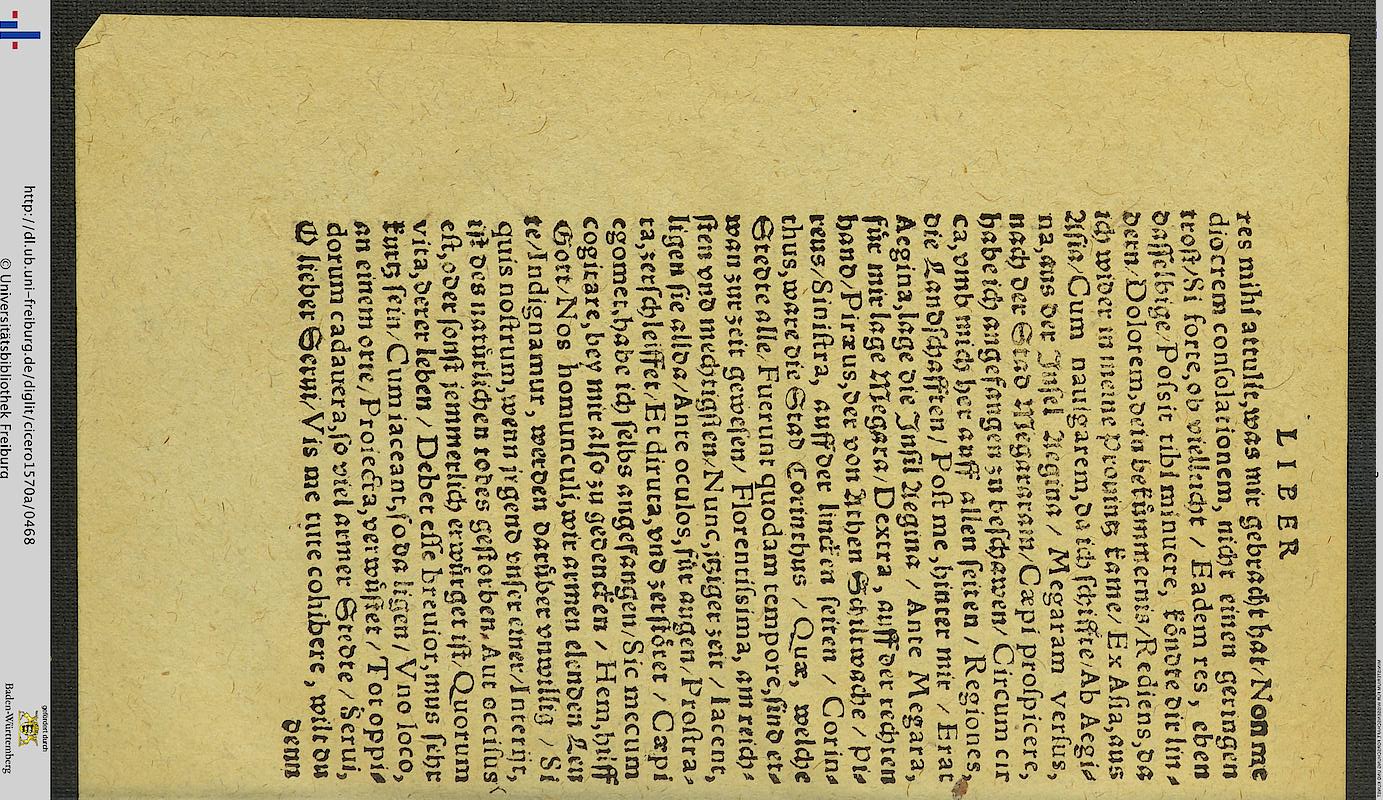 LIBER
res mihi attulit, was mir gebracht hat / Non me
diocrem consolationem, nicht einen geringen
trost / Si forte, ob vielleicht / Eadem res, eben
dasselbige / Possit tibi minuere, köndte dir lin⸗
dern / Dolorem, dein bekümmernis / Rediens, da
ich wider in meine Prouintz kame / Ex Asia, aus
Asia / Cum nauigarem, da ich schiffte / Ab Aegi⸗
na, aus der Insel Aegina / Megaram versus,
nach der Stad Megaram / Cœpi prospicere,
habe ich angefangen zu beschawen / Circum cir
ca, vmb mich her auff allen seiten / Regiones,
die Landschafften / Post me, hinter mir / Erat
Aegina, lage die Insel Aegina / Ante Megara,
für mir lage Megara / Dextra, auff der rechten
hand / Piræus, der von Athen Schutwache / Pi⸗
reus / Sinistra, auff der lincken seiten / Corin⸗
thus, ware die Stad Corinthus / Quæ, welche
Stedte alle / Fuerunt quodam tempore, sind et⸗
wan zur zeit gewesen / Florentissima, am reich⸗
sten vnd mechtigsten / Nunc, itziger zeit / Iacent,
ligen sie allda / Ante oculos, für augen / Prostra⸗
ta, zerschleiffet / Et diruta, vnd zerstöret / Cœpi
egomet, habe ich selbs angefangen / Sic mecum
cogitare, bey mir also zu gedencken / Hem, hilff
Gott / Nos homunculi, wir armen elenden Leu
te / Indignamur, werden darüber vnwillig / Si
quis nostrum, wenn jrgend vnser einer / Interijt,
ist des natürlichen todes gestorben / Aut occisus
est, oder sonst jemmerlich erwürget ist / Quorum
vita, derer leben / Debet esse breuior, mus sehr
kurtz sein / Cum iaceant, so da ligen / Vno loco,
an einem orte / Proiecta, verwüstet / Tot oppi⸗
dorum cadauera, so viel armer Stedte / Serui,
O lieber Serui / Vis ne tu te cohibere, wilt du
denn
http://dl.ub.uni-freiburg.de/diglit/cicero1570a/0468
© Universitätsbibliothek Freiburg
gefördert durch
Baden-Württemberg